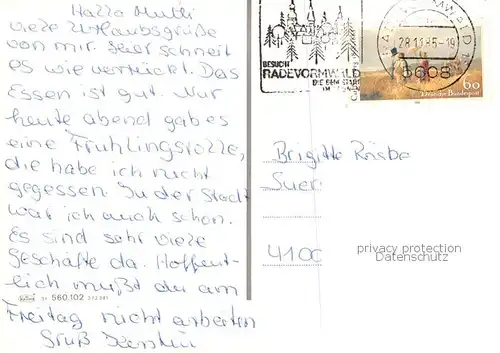 Hallo Mutti
viele Urlaubsgrüße
von mir. Hier schneit
es wie verrückt. Das
Essen ist gut. Nur
heute abend gab es
eine Frühlingsrolle,
die habe ich nicht
gegessen. In der Stadt
war ich auch schon.
Es sind sehr viele
Geschäfte da. Hoffent-
lich mußt du am
Freitag nicht arbeiten
Gruß Kerstin
51 560.102
BESUCHT
RADEVORMWALD
28.11.85-19
5608
60
Deutsche Bundespost
Brigitte
4100
privacy protection
Datenschutz